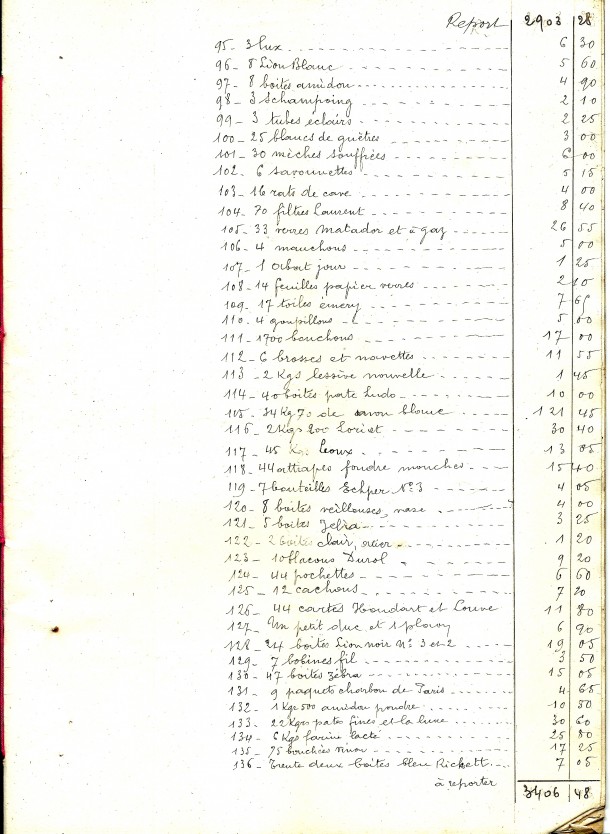 Report 2903 28
95- 3 lux 6 30
96- 8 Lion Blanc 5 60
97- 8 boites amidon 4 90
98- 3 Schampoing 2 10
99- 3 tubes éclairs 2 25
100- 25 blancs de guêtres 3 00
101- 30 mèches souffrées 6 00
102- 6 savonnettes 5 15
103- 16 rats de cave 4 00
104- 70 filtres Laurent 8 40
105- 33 verres Matador et à gaz 26 55
106- 4 manchons 5 00
107- 1 jour 1 25
108- 14 feuilles papier verres 2 10
109- 17 toiles émery 7 65
110- 4 goupillons 5 00
111- 1700 bouchons 17 00
112- 6 brosses et navettes 11 55
113- 2 Kgs lessive nouvelle 1 45
114- 40 boites pate Ludo 10 00
115- 34 Kg 70 de savon blanc 121 45
116- 2 Kgs 200 Loriet 30 40
117- 45 Kgs 13 05
118- 44 attrapes foudre mouches 15 40
119- 7 bouteilles Echper N° 3 4 05
120- 8 boites veilleuses, nase 4 00
121- 5 boites Jebra 3 25
122- 2 boites clair, acier 1 20
123- 10 flacons Durol 9 20
124- 44 pochettes 6 60
125- 12 cachous 7 20
126- 44 cartes Houdart et Louve 11 80
127- Un petit duc et 1 6 90
128- 24 boites Lion noir N° 3 et 2 19 05
129- 7 bobines fil 3 50
130- 47 boites Zébra 15 05
131- 9 paquets charbon de Paris 4 65
132- 1 Kgr 500 amidon poudre 10 50
133- 22 Kgrs pates fines et la lune 30 60
134- 6 Kgs farine lacté 25 80
135- 75 bouchées 17 25
136- Trente deux boites bleu Rickett 7 05
à reporter 3406 48